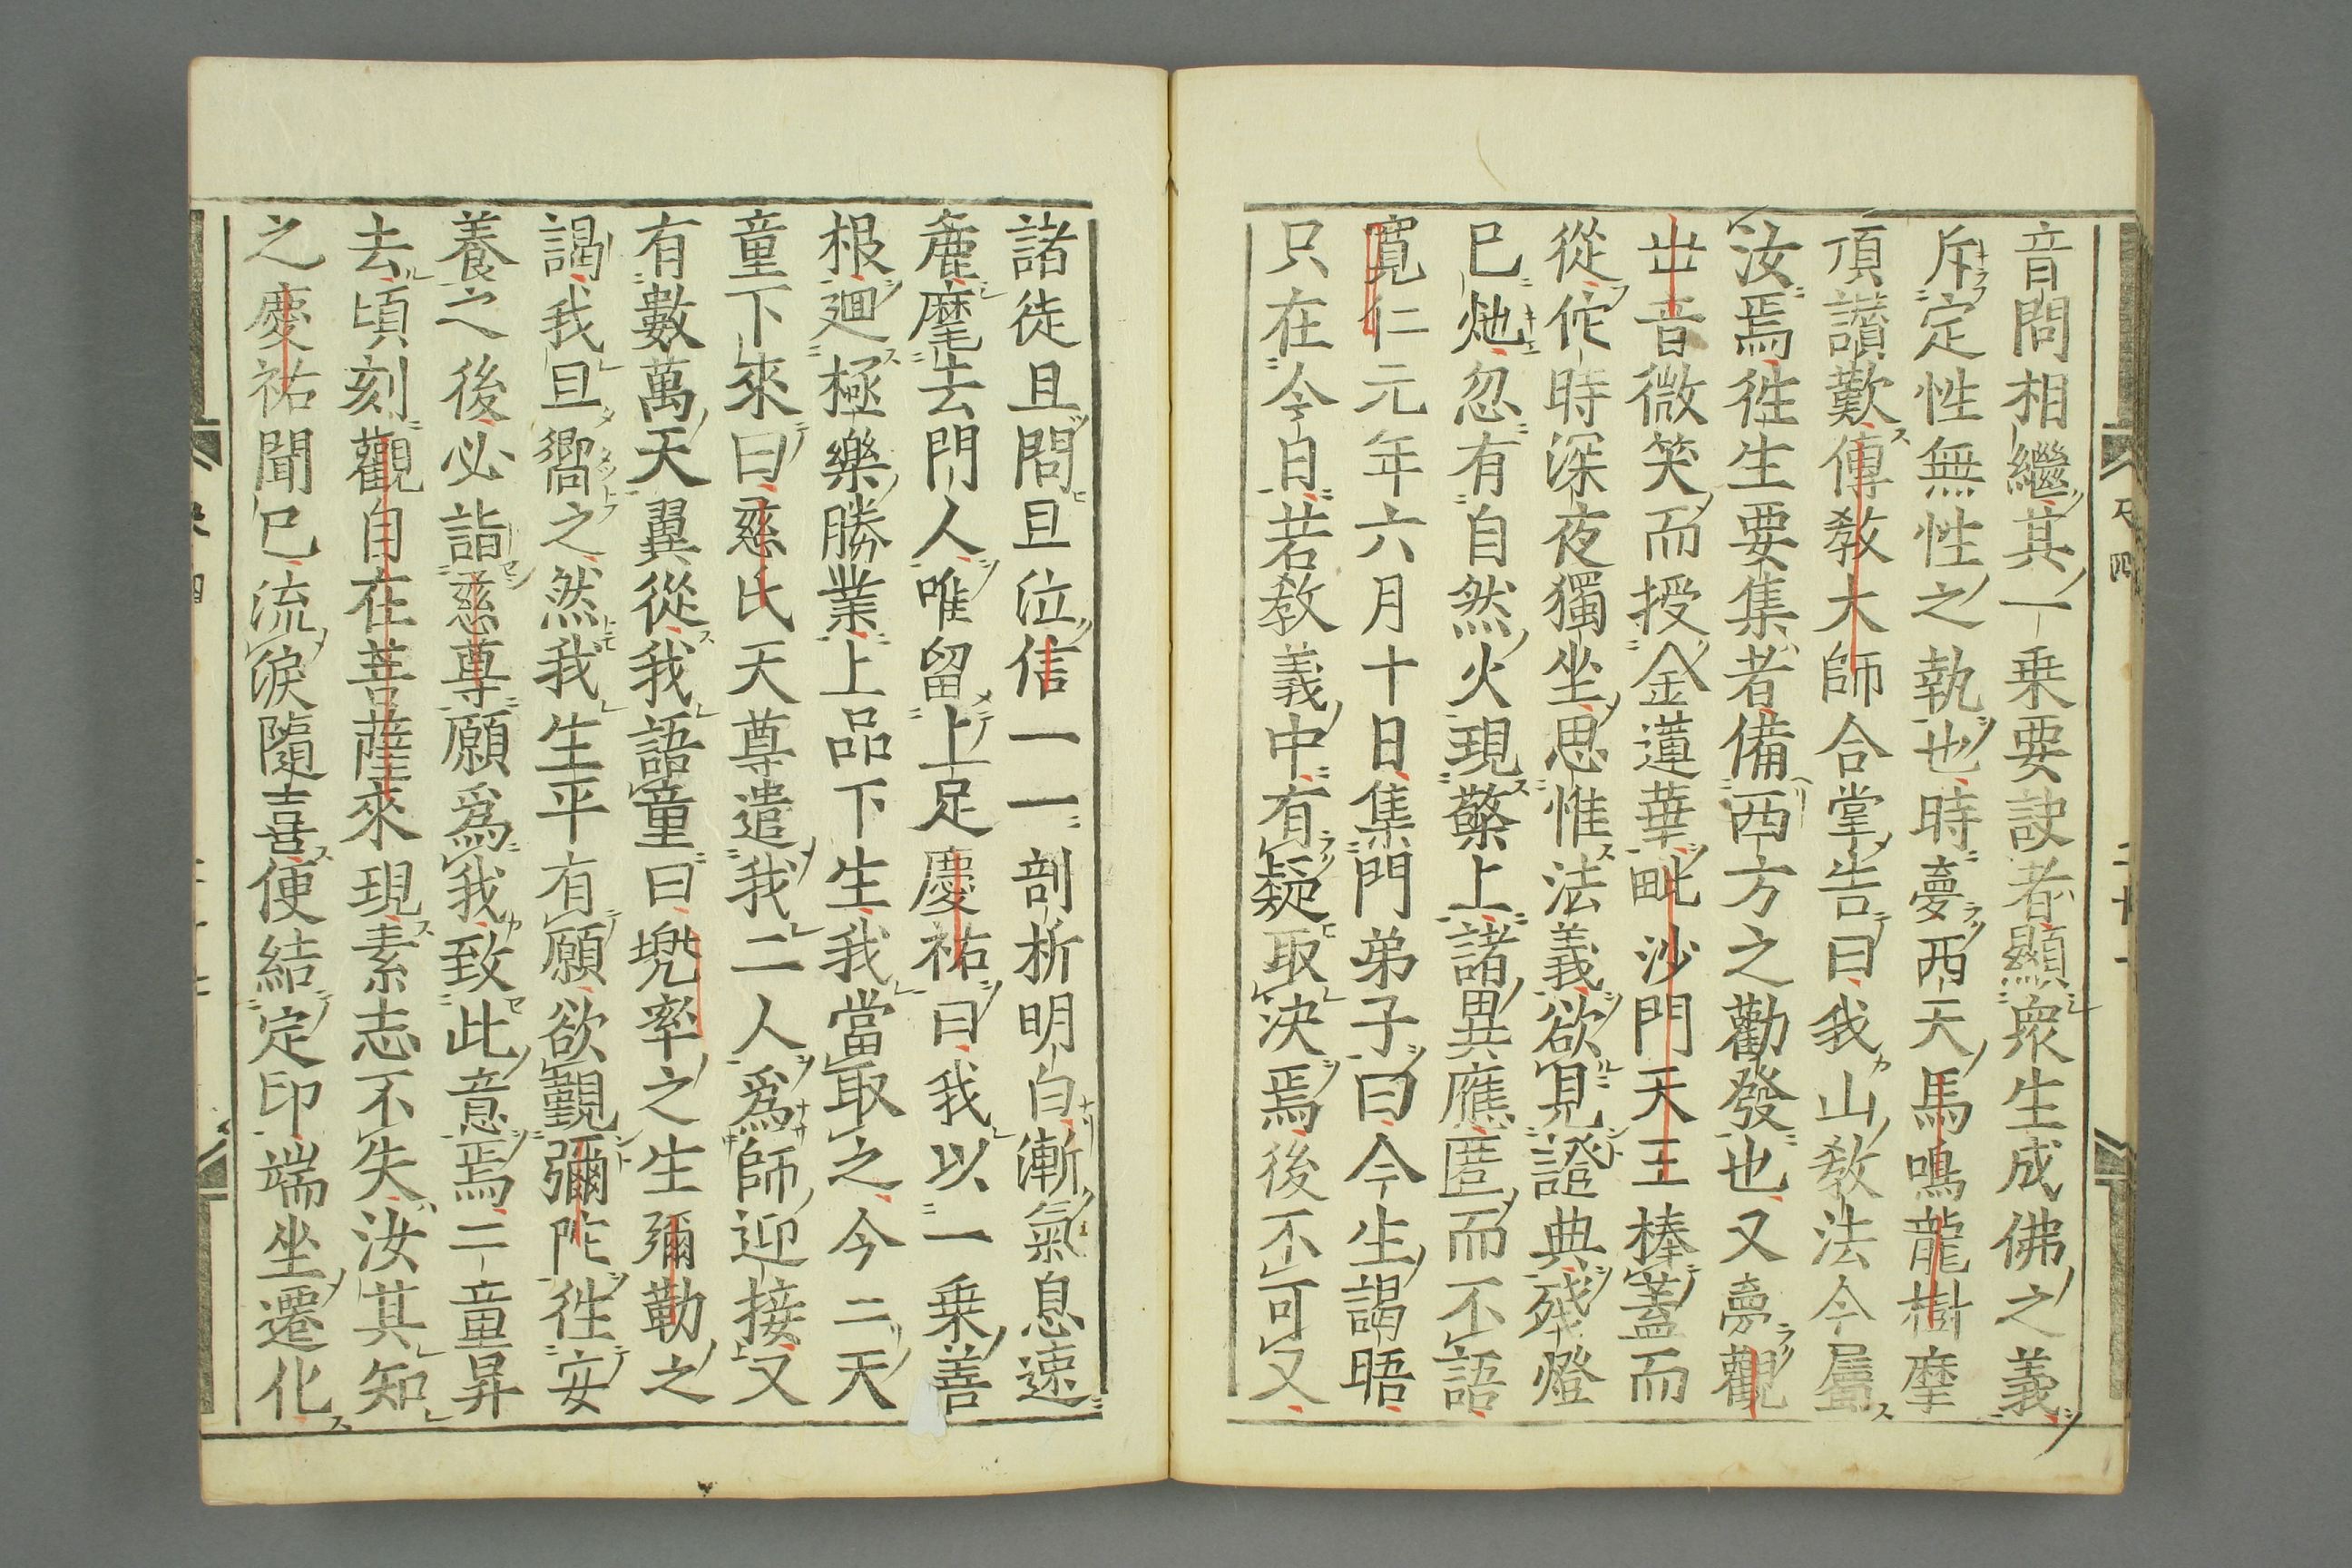 音問相繼其一乗要訣者顯衆生成佛之義
斥定性無性之執也時夢西天馬鳴龍樹摩
頂讃歎傳教大師合掌告曰我山教法今屬
汝焉徃生要集者備西方之勸發也又夢觀
丗音微笑而授金蓮華毗沙門天王捧蓋而
從侘時深夜獨坐思惟法義欲見證典殘燈
已灺忽有自然火現檠上諸異應匿而不語
寬仁元年六月十日集門弟子曰今生謁晤
只在今日若教義中有疑取決焉後不可又
諸徒且問且泣信一一剖析明白漸氣息速
麁麾去門人唯留上足慶祐曰我以一乗善
根廻極樂勝業上品下生我當取之今二天
童下來曰慈氏天尊遣我二人爲師迎接又
有數萬天翼從我語童曰兠率之生彌勒之
謁我且嚮之然我生平有願欲覲彌陀徃安
養之後必詣慈尊願爲我致此意焉二童昇
去頃刻觀自在菩薩來現素志不失汝其知
之慶祐聞已流淚隨喜便結定印端坐遷化